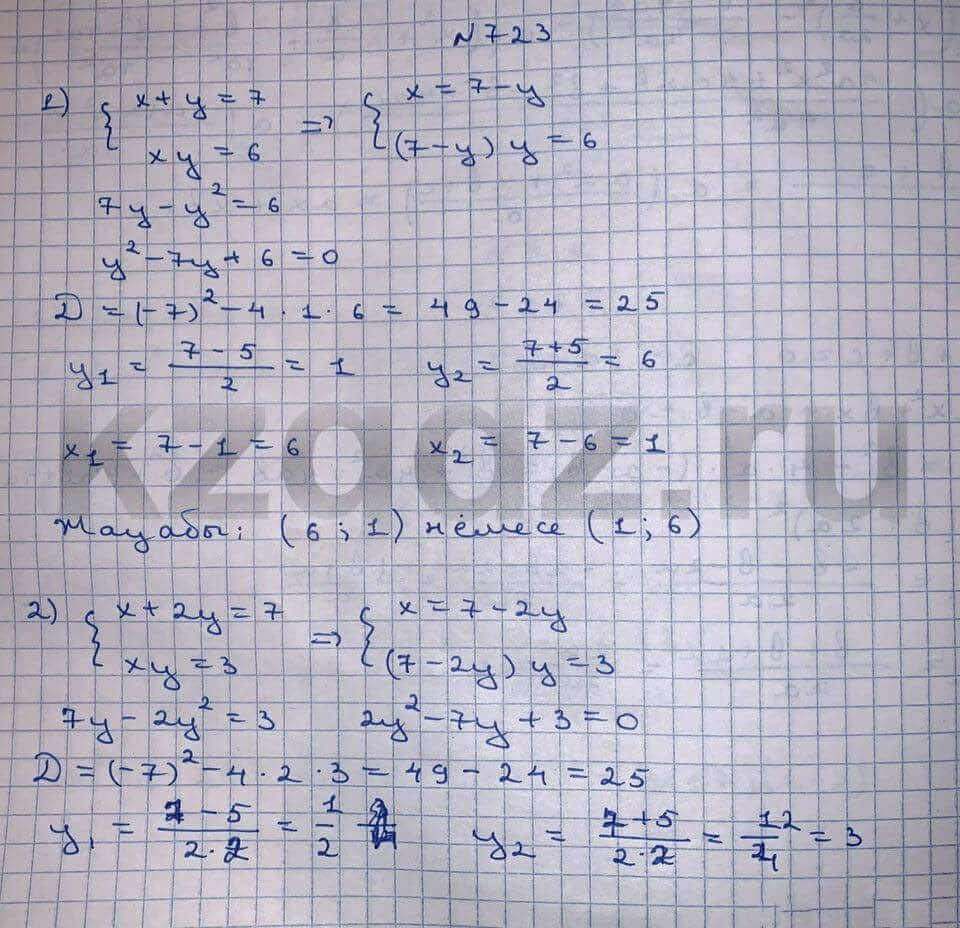 N 723
1) { x + y = 7 => { x = 7 - y
xy = 6 (7 - y) y = 6
7y - y² = 6
y² - 7y + 6 = 0
D = (-7)² - 4 · 1 · 6 = 49 - 24 = 25
y₁ = (7 - 5)/2 = 1 y₂ = (7 + 5)/2 = 6
kzgdz.ru
x₁ = 7 - 1 = 6 x₂ = 7 - 6 = 1
Жауабы: (6 ; 1) немесе (1 ; 6)
2) { x + 2y = 7 => { x = 7 - 2y
xy = 3 (7 - 2y) y = 3
7y - 2y² = 3 2y² - 7y + 3 = 0
D = (-7)² - 4 · 2 · 3 = 49 - 24 = 25
y₁ = (7 - 5)/(2 · 2) = 1/2 y₂ = (7 + 5)/(2 · 2) = 12/4 = 3